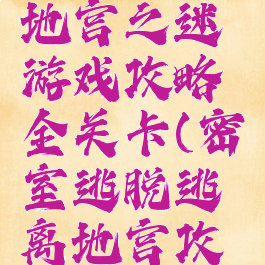 地宫之迷
游戏攻略
全关卡(密
室逃脱逃
离地宫攻